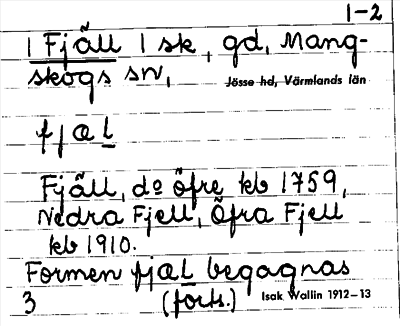 1-2
1 Fjäll 1 sk, gd, Mang-
skogs sn,
Jösse hd, Värmlands län
fjæl
Fjäll, do öfre kb 1759,
Nedra Fjell, Öfra Fjell
kb 1910.
Formen fjæl begagnas
3 (forts.) Isak Wallin 1912-13